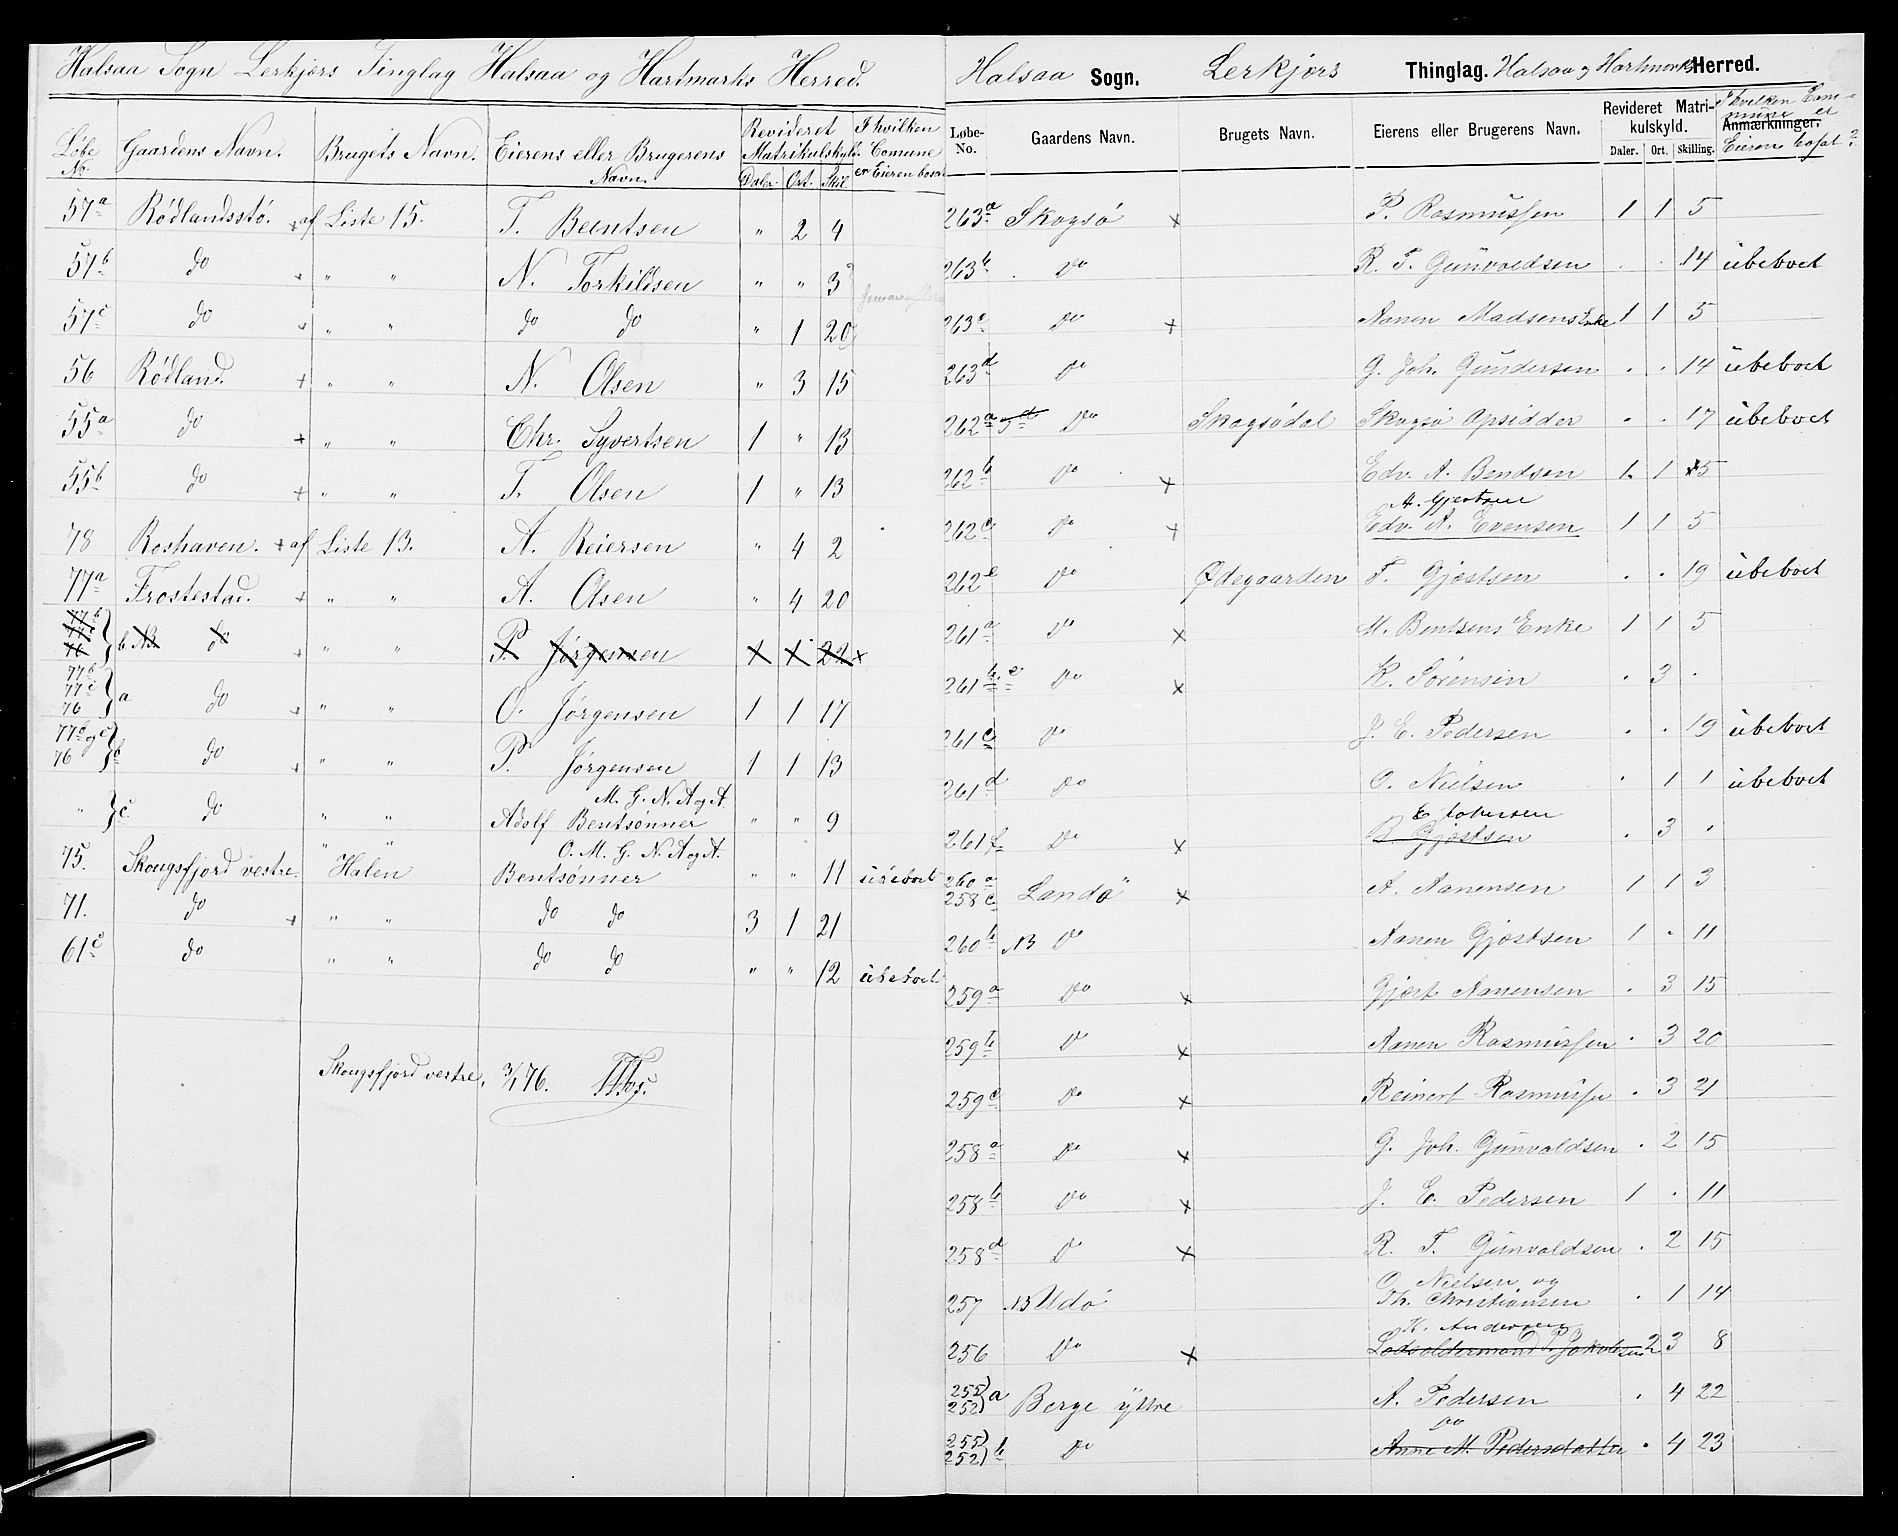 Halsaa Sogn Lerkjers Tinglag Halsaa og Hartmarks Herred.
Løbe No. Gaardens Navn. Brugets Navn. Eierens eller Brugerens Navn. Revideret Matrikulskyld. Daler. Ort. Skil. I hvilken Comune er Eieren bosat
57a Rødlandsstø. + af Liste 15. T. Berntsen " 2 4
57b do + " " N. Torkildsen " " 3
57c do " " do do " 1 20
56 Rødland. + " " N. Olsen " 3 15
55a do + " " Chr. Syvertsen 1 " 13
55b do + " " T. Olsen 1 " 13
78 Roshaven. + af Liste 13. A. Reiersen " 4 2
77a Frostestad. + " " A. Olsen " 4 20
77b 77c 76 } b. NB do " " P. Jørgensen 1 1 22 x
77b 77c 76 } a do " " O. Jørgensen 1 1 17
77b og c 76 } b do + " " P. Jørgensen 1 1 13
M. G. N. A og A.
" } c do " " Adolf Bentsønner " " 9
O. M. G. N. A og A.
75. Skougsfjord vestre. Halen Bentsønner " " 11 übeboet
71. do + " " do do 3 1 21
61c do " " do do " " 12 übeboet
Skougsfjord vestre, 3/1 76.
Halsaa Sogn. Lerkjers Thinglag. Halsaa og Hartmarks Herred.
Løbe-No. Gaardens Navn. Brugets Navn. Eierens eller Brugerens Navn. Revideret Matrikulskyld. Daler. Ort. Skilling. Anmærkninger. I hvilken Commune er Eieren bosat?
263a Skogsö x P. Rasmussen 1 1 5
263b Do R. T. Gunvaldsen . . 14 übeboet
263c Do x Aanen Madsens Enke 1 1 5
263d Do G. Joh. Gundersen . . 14 übeboet
262a Do Skogsödal Skogsö Opsidder . . 17 übeboet
262b Do x Edv. A. Bendsen 1. 1 5
A. Gjertsen
262c Do x Edv. A. Evensen 1 1 5
262e Do Ødegaarden T. Gjertsen . . 19 übeboet
261a Do x M. Bentsens Enke 1 1 5
261b. e Do x K. Sørensen . 3 .
261c Do J. E. Pedersen . . 19 übeboet
261d Do O. Nielsen . 1 1 übeboet
261f. Do x B Gjertsen . 3 .
260a 258c Landö x A. Aanensen 1 1 3
260b NB Do Aanen Gjertsen 1 . 11
259a Do x Gjert Aanensen . 3 15
259b Do x Aanen Rasmussen . 3 20
259c Do x Reinert Rasmussen . 3 21
258a Do x G. Joh. Gunvaldsen . 2 15
258b Do x J. E. Pedersen 1 . 11
258d Do x R. T. Gunvaldsen . 2 15
O. Nielsen og
257 NB Udö Th. Christiansen . 1 14
K. Andersen
256 Do x Lodsoldermand P. Jakobsen 2 3 8
255 252 ) a Berge yttre A. Pedersen . 4 22
Do
255 252 ) b Do Anne M. Pedersdatter . 4 23